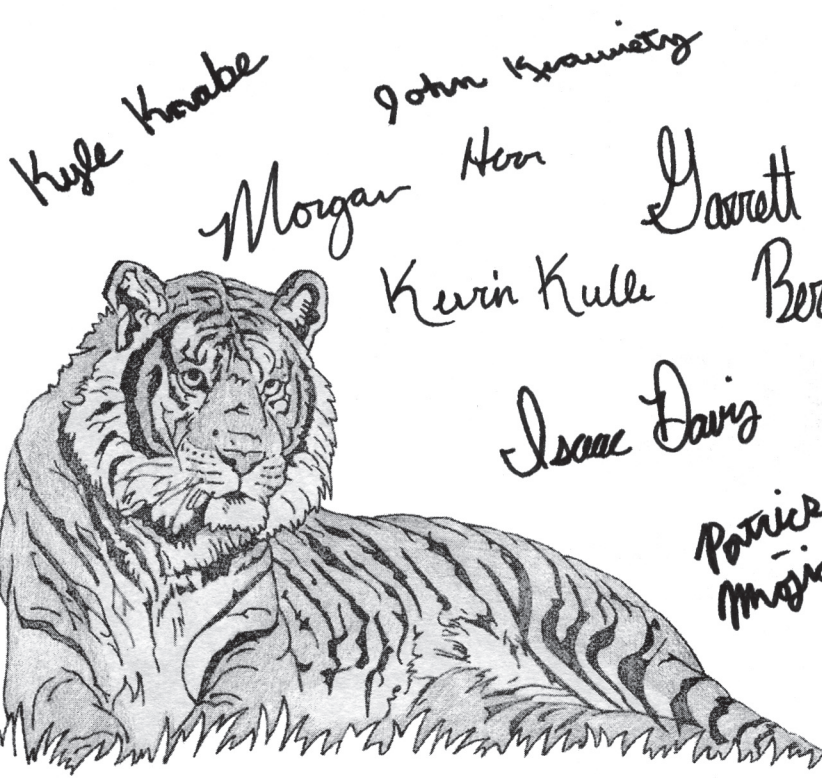 Kyle Knabe
John
Morgan Herr
Garrett
Kevin Kulle
Ber
Isaac Davis
Patrick
Moji